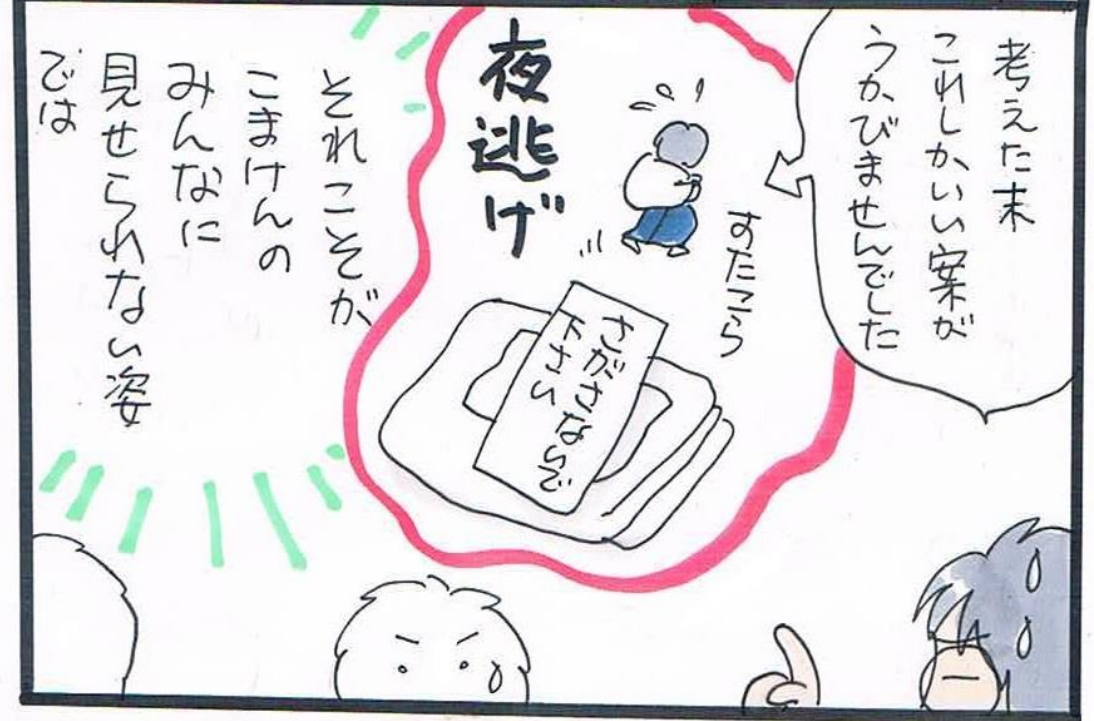 考えた末
これしかいい案が
うかびませんでした
夜逃げ
すたこら
さがさないで
下さい
それこそが
こまけんの
みんなに
見せられない姿
では